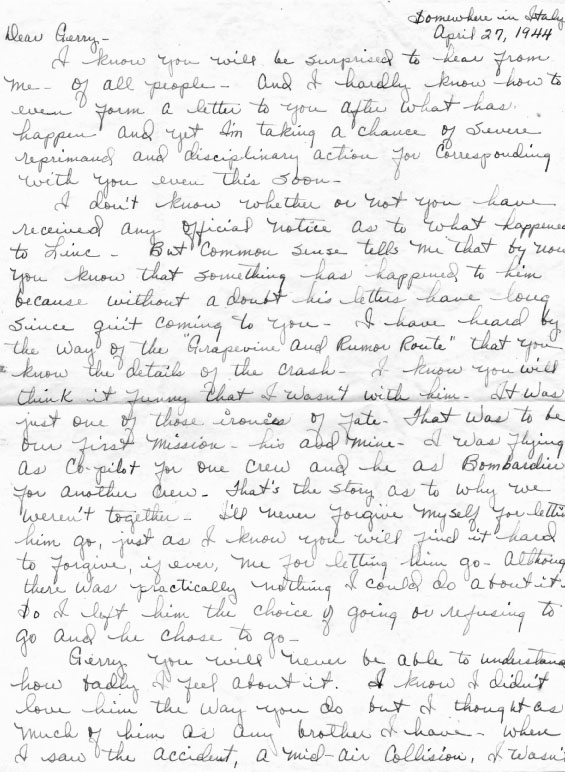 Somewhere in Italy
April 27, 1944
Dear Gerry-
I know you will be surprised to hear from
me - of all people - and I hardly know how to
even form a letter to you after what has
happen and yet I'm taking a chance of severe
reprimand and disciplinary action for corresponding
with you even this soon -
I don't know whether or not you have
received any official notice as to what happened
to Linc - But common sense tells me that by now
you know that something has happened to him
because without a doubt his letters have long
siince quit coming to you - I have heard by
the way of the "Grapevine and Rumor Route" that you
know the details of the crash - I know you will
think it funny that I wasn't with him - It was
just one of those ironies of fate - That was to be
our first mission - his and mine - I was flying
as Co-pilot for one crew and he as Bombardier
for another crew - That's the story as to why we
weren't together - I'll never forgive myself for lettin
him go, just as I know you will find it hard
to forgive, if ever, me for letting him go - Althoug
there was practically nothing I could do about it.
So I left him the choice of going or refusing to
go and he chose to go -
Gerry you will never be able to understand
how badly I feel about it. I know I didn't
love him the way you do but I thought as
much of him as any brother I have - When
I saw the accident, a mid-air collision, I wasn't